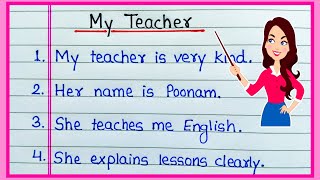 My Teacher
1. My teacher is very kind.
2. Her name is Poonam.
3. She teaches me English.
4. She explains lessons clearly.